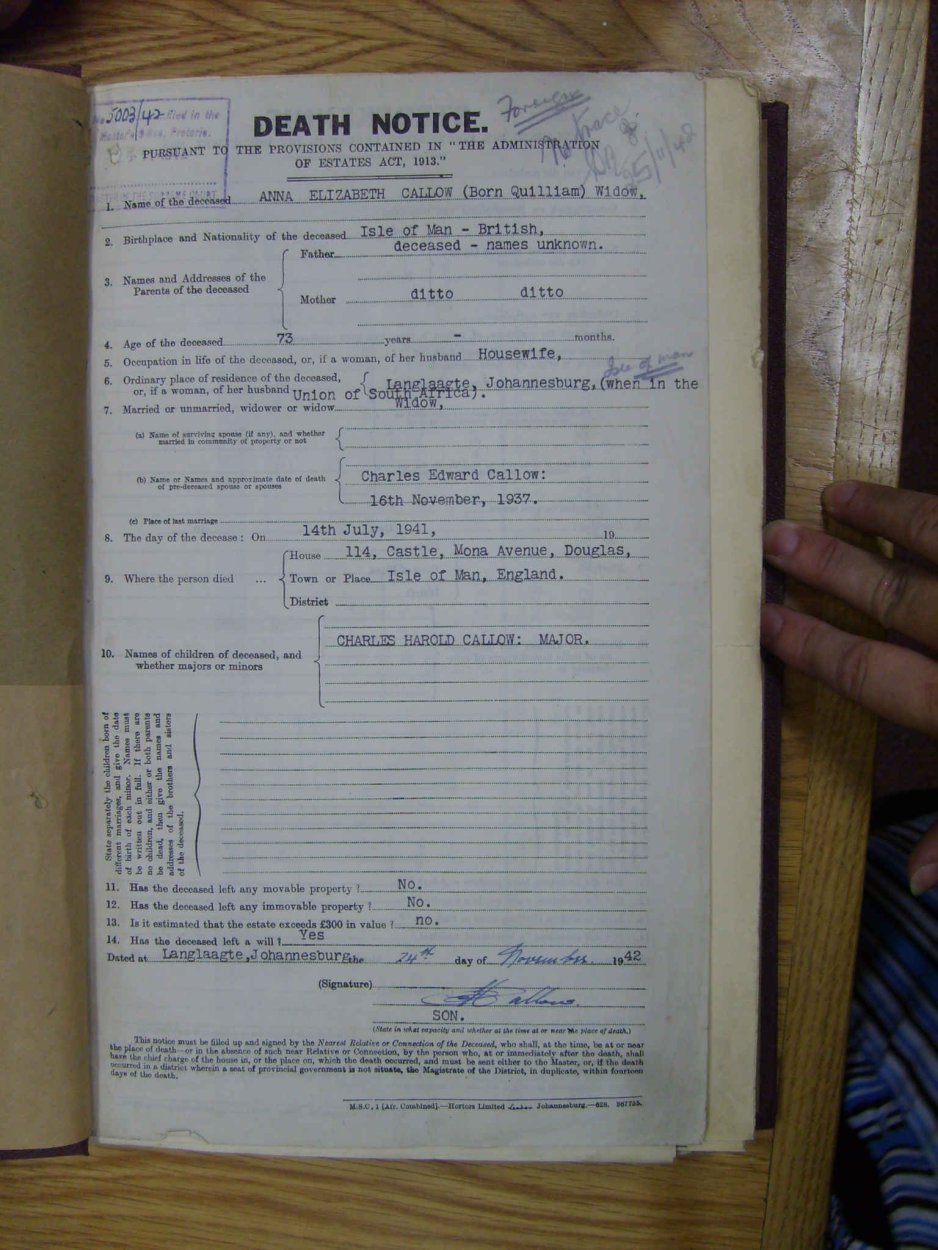 5003/42 filed in the
Master's Office, Pretoria.
Foreign
No trace
25/11/42
DEATH NOTICE.
PURSUANT TO THE PROVISIONS CONTAINED IN "THE ADMINISTRATION
OF ESTATES ACT, 1913."
1. Name of the deceased ANNA ELIZABETH CALLOW (Born Quilliam) Widow,
2. Birthplace and Nationality of the deceased Isle of Man - British,
3. Names and Addresses of the Parents of the deceased
Father deceased - names unknown.
Mother ditto ditto
4. Age of the deceased 73 years - months.
5. Occupation in life of the deceased, or, if a woman, of her husband Housewife,
Isle of man
6. Ordinary place of residence of the deceased, or, if a woman, of her husband Langlaagte, Johannesburg, (when in the
Union of South Africa).
7. Married or unmarried, widower or widow Widow,
(a) Name of surviving spouse (if any), and whether
married in community of property or not
(b) Name or Names and approximate date of death
of pre-deceased spouse or spouses
Charles Edward Callow:
16th November, 1937.
(c) Place of last marriage
8. The day of the decease: On 14th July, 1941, 19
9. Where the person died ...
House 114, Castle, Mona Avenue, Douglas,
Town or Place Isle of Man, England.
District
10. Names of children of deceased, and
whether majors or minors
CHARLES HAROLD CALLOW: MAJOR.
State separately the children born of
different marriages, and give the date
of birth of each minor. Names must
be written out in full. If there are
no children, and either or both parents
be dead, then give the names and
addresses of the brothers and sisters
of the deceased.
11. Has the deceased left any movable property? No.
12. Has the deceased left any immovable property? No.
13. Is it estimated that the estate exceeds £300 in value? no.
14. Has the deceased left a will? Yes
Dated at Langlaagte, Johannesburg the 24th day of November. 1942
(Signature) Callow.
SON.
(State in what capacity and whether at the time at or near the place of death.)
This notice must be filled up and signed by the Nearest Relative or Connection of the Deceased, who shall, at the time, be at or near
the place of death—or in the absence of such near Relative or Connection, by the person who, at or immediately after the death, shall
have the chief charge of the house in, or the place on, which the death occurred, and must be sent either to the Master, or, if the death
occurred in a district wherein a seat of provincial government is not situate, the Magistrate of the District, in duplicate, within fourteen
days of the death.
M.S.C, 1 [Afr. Combined].—Hortors Limited Johannesburg.—628. 267755.